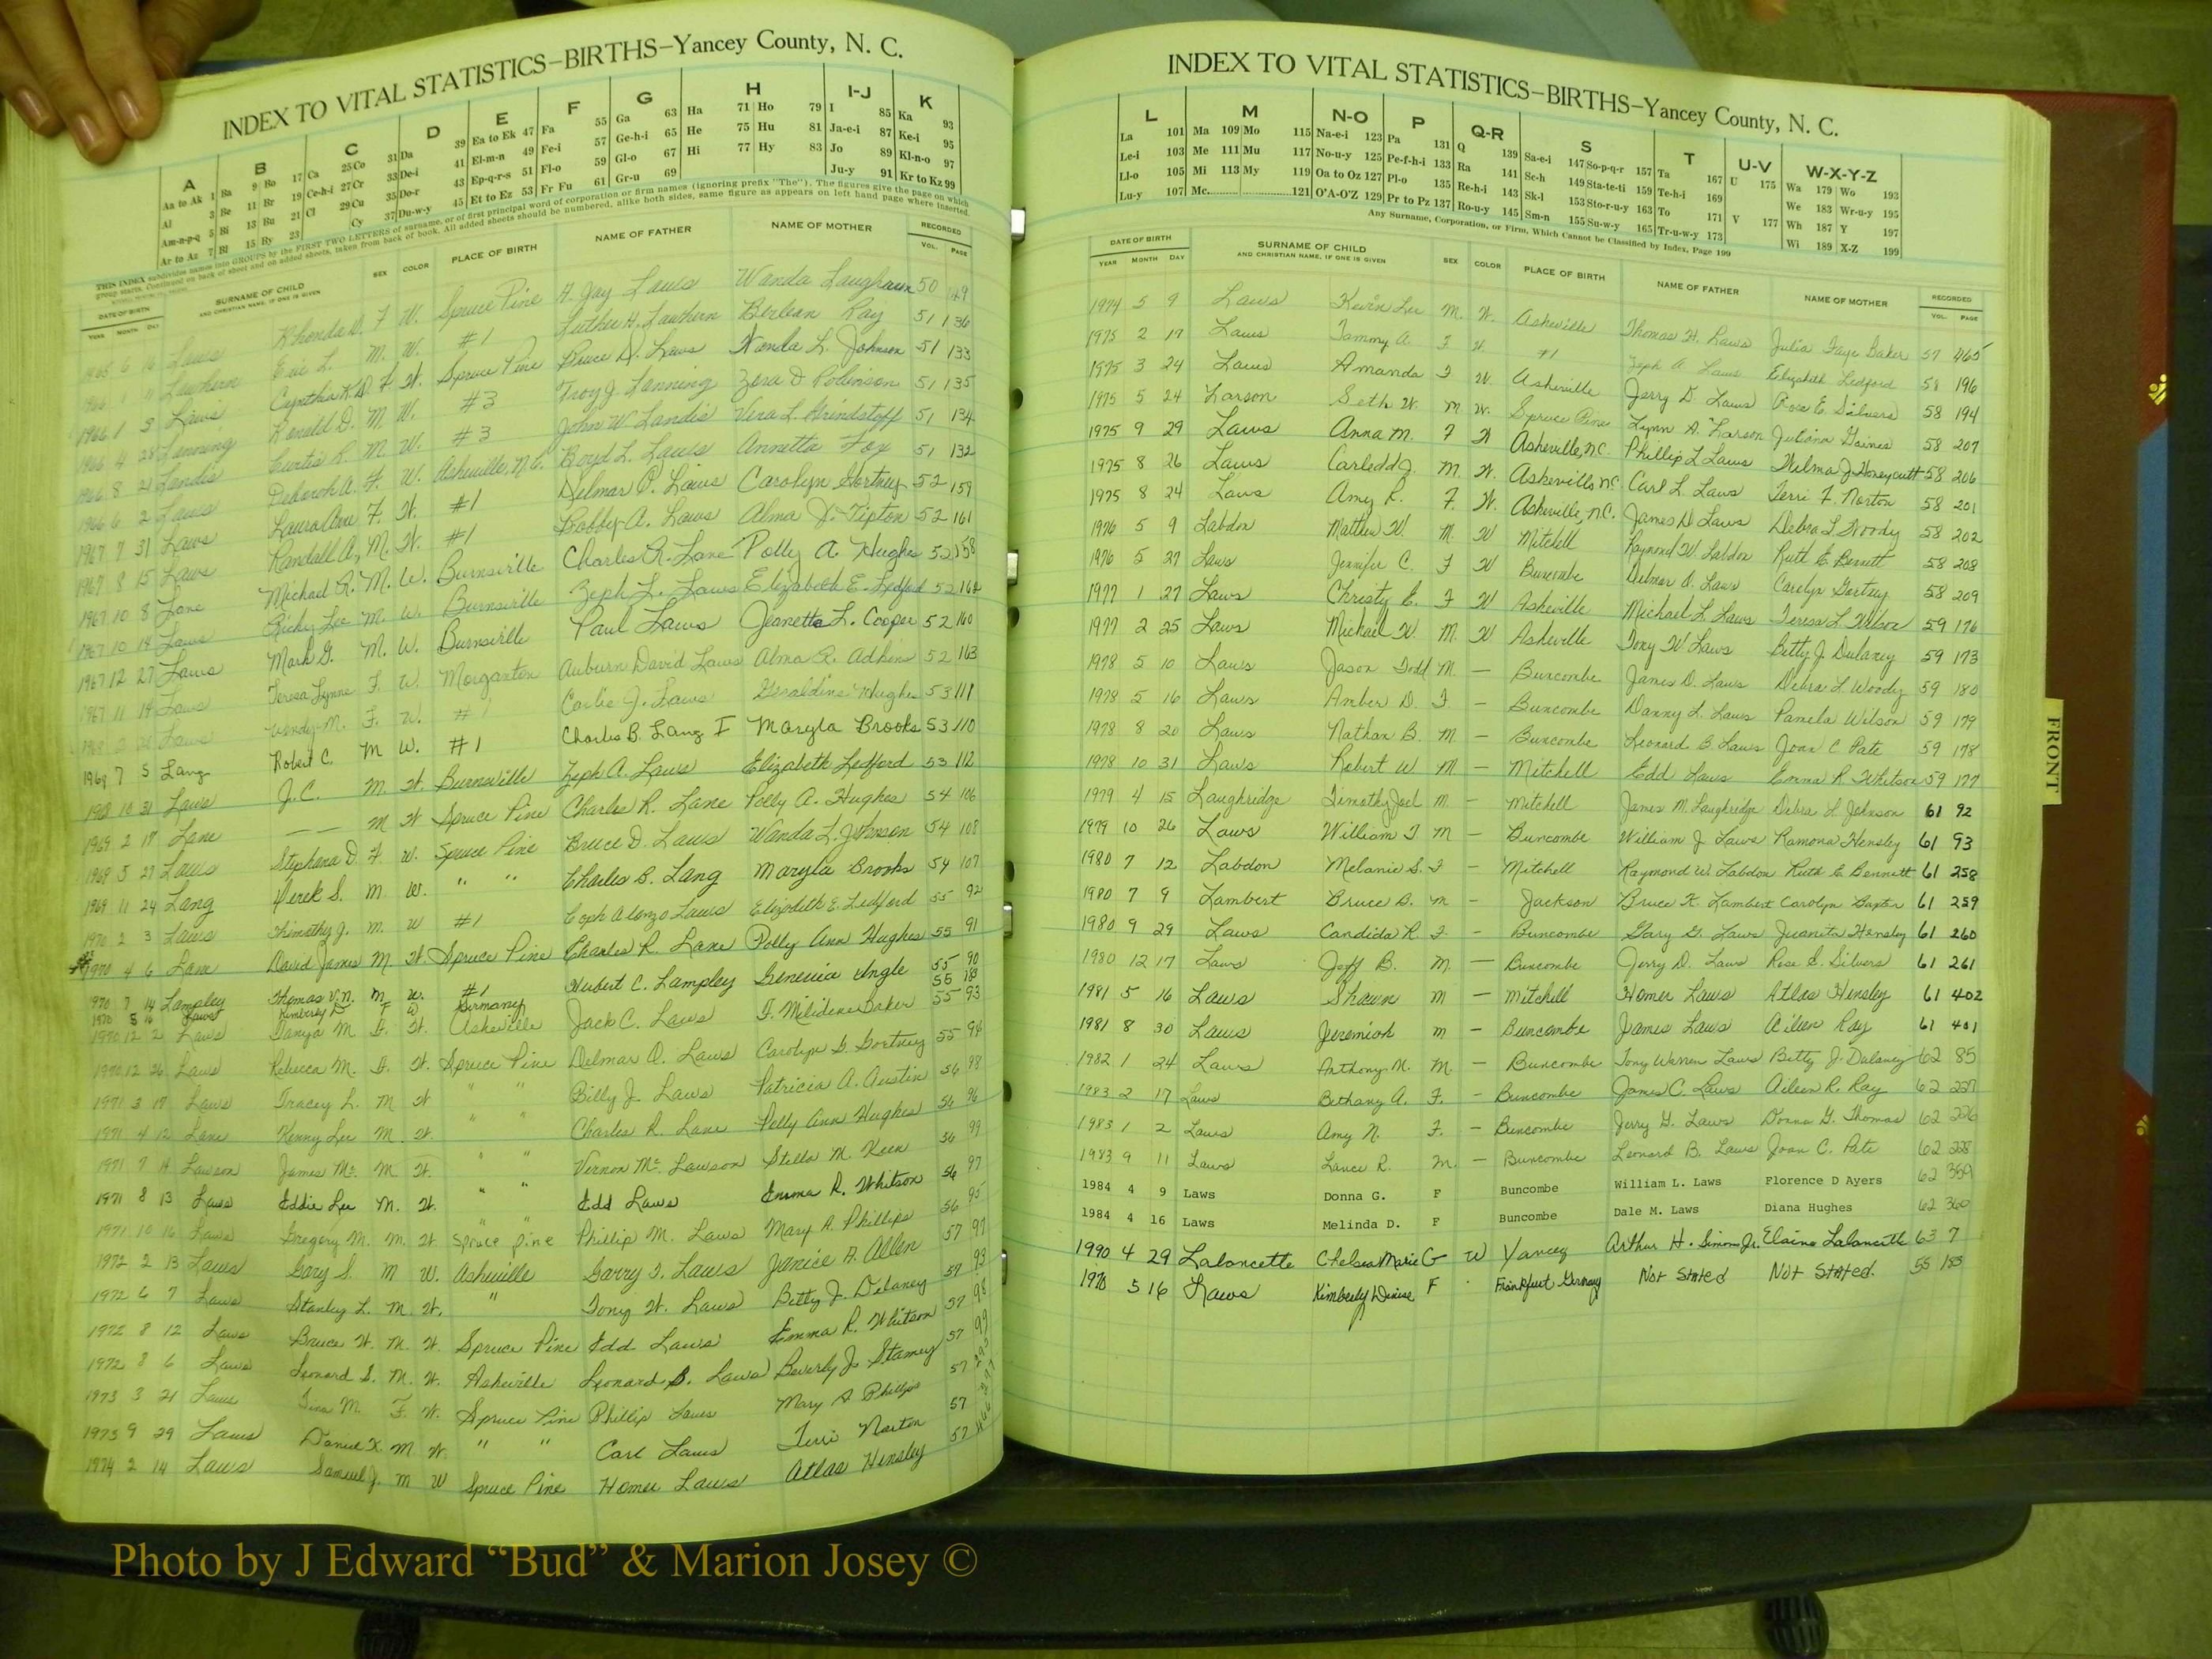 INDEX TO VITAL STATISTICS—BIRTHS—Yancey County, N. C.
A B C D E F G H I-J K
Aa to Ak 1 Ba 9 Bo 17 Ca 25 Co 31 Da 39 Ea to Ek 47 Fa 55 Ga 63 Ha 71 Ho 79 I 85 Ka 93
Al 3 Be 11 Br 19 Ce-h-i 27 Cr 33 De-i 41 El-m-n 49 Fe-i 57 Ge-h-i 65 He 75 Hu 81 Ja-e-i 87 Ke-i 95
Am-n-p-q 5 Bi 13 Bu 21 Cl 29 Cu 35 Do-r 43 Ep-q-r-s 51 Fl-o 59 Gl-o 67 Hi 77 Hy 83 Jo 89 Kl-n-o 97
Ar to Az 7 Bl 15 By 23 Cy 37 Du-w-y 45 Et to Ez 53 Fr Fu 61 Gr-u 69 Ju-y 91 Kr to Kz 99
THIS INDEX subdivides names into GROUPS by the FIRST TWO LETTERS of surname, or of first principal word of corporation or firm names (ignoring prefix "The"). The figures give the page on which
group starts. Continued on back of sheet and on added sheets, taken from back of book. All added sheets should be numbered, alike both sides, same figure as appears on left hand page where inserted.
DATE OF BIRTH SURNAME OF CHILD SEX COLOR PLACE OF BIRTH NAME OF FATHER NAME OF MOTHER RECORDED
YEAR MONTH DAY AND CHRISTIAN NAME, IF ONE IS GIVEN VOL. PAGE
Laws Rhonda D. F W. Spruce Pine A. Jay Laws Wanda Laughrun 50 149
Lawhern Eric L. M. W. #1 Luther H. Lawhern Berlean Ray 51 136
1966 1 Laws Cynthia K.D. F W. Spruce Pine Bruce D. Laws Wanda L. Johnson 51 133
1966 4 28 Lanning Ronald D. M. W. #3 Troy J. Lanning Zora D Robinson 51 135
1966 8 21 Landis Curtis R. M. W. #3 John W. Landis Vera L. Grindstaff 51 134
1966 6 2 Laws Deborah A. F. W. Asheville, N.C. Boyd L. Laws Annetta Fox 51 132
1967 7 31 Laws Laura Ann F. W. #1 Delmar O. Laws Carolyn Gortney 52 159
1967 8 15 Laws Randall A. M. W. #1 Bobby A. Laws Alma J. Tipton 52 161
1967 10 8 Lane Michael R. M. W. Burnsville Charles R. Lane Polly A. Hughes 52 158
1967 10 14 Laws Ricky Lee M. W. Burnsville Zeph L. Laws Elizabeth E. Ledford 52 162
1967 12 27 Laws Mark G. M. W. Burnsville Paul Laws Jeanette L. Cooper 52 160
1967 11 14 Laws Teresa Lynne F. W. Morganton Auburn David Laws Alma R. Adkins 52 163
Laws Wendy M. F. W. #1 Carlie J. Laws Geraldine Hughes 53 111
1968 7 5 Lang Robert C. M W. #1 Charles B. Lang I Maryla Brooks 53 110
1968 10 31 Laws J.C. M. W. Burnsville Zeph A. Laws Elizabeth Ledford 53 112
1969 2 17 Lane — — M W Spruce Pine Charles R. Lane Polly A. Hughes 54 106
1969 5 27 Laws Stephena D. F. W. Spruce Pine Bruce D. Laws Wanda L. Johnson 54 108
1969 11 24 Lang Derek S. M. W. " " Charles B. Lang Maryla Brooks 54 107
1970 2 3 Laws Thimothy J. M. W #1 Zeph Alonzo Laws Elizabeth E. Ledford 55 92
1970 4 6 Lane David James M W. Spruce Pine Charles R. Lane Polly Ann Hughes 55 91
1970 7 14 Lampley Thomas V.N. M. W. #1 Herbert C. Lampley Generia Angle 55 90
1970 5 16 Laws Kimberly D F W Germany 55 183
1970 12 2 Laws Tanya M F. W. Asheville Jack C. Laws F. Milidene Baker 55 93
1970 12 26 Laws Rebecca M. F. W. Spruce Pine Delmar O. Laws Carolyn G. Gortney 55 94
1971 3 17 Laws Tracey L. M W " " Billy J. Laws Patricia A. Austin 56 98
1971 4 12 Lane Kenny Lee M. W. " " Charles R. Lane Polly Ann Hughes 56 96
1971 7 14 Lawson James Mc. M. W. " " Vernon Mc. Lawson Stella M. Keen 56 99
1971 8 13 Laws Eddie Lee M. W. " " Edd Laws Emma R. Whitson 56 97
1971 10 16 Laws Gregory M. M. W Spruce Pine Phillip M. Laws Mary A. Phillips 56 95
1972 2 13 Laws Gary S. M W. Asheville Garry F. Laws Janice A. Allen 57 97
1972 6 7 Laws Stanley L. M. W. " Tony W. Laws Betty J. Delaney 57 93
1972 8 12 Laws Bruce W. M. W. Spruce Pine Edd Laws Emma R. Whitson 57 98
1972 8 6 Laws Leonard S. M. W. Asheville Leonard B. Laws Beverly J. Stamey 57 99
1973 3 21 Laws Tina M. F. W. Spruce Pine Phillip Laws Mary A Phillips 57
1973 9 29 Laws Daniel K. M. W. " " Carl Laws Terri Norton 57
1974 2 14 Laws Samuel J. M W Spruce Pine Homer Laws Atlas Hensley 57 466
INDEX TO VITAL STATISTICS—BIRTHS—Yancey County, N. C.
L M N-O P Q-R S T U-V W-X-Y-Z
La 101 Ma 109 Mo 115 Na-e-i 123 Pa 131 Q 139 Sa-e-i 147 So-p-q-r 157 Ta 167 U 175 Wa 179 Wo 193
Le-i 103 Me 111 Mu 117 No-u-y 125 Pe-f-h-i 133 Ra 141 Sc-h 149 Sta-te-ti 159 Te-h-i 169 We 183 Wr-u-y 195
Ll-o 105 Mi 113 My 119 Oa to Oz 127 Pl-o 135 Re-h-i 143 Sk-l 153 Sto-r-u-y 163 To 171 V 177 Wh 187 Y 197
Lu-y 107 Mc. 121 O'A-O'Z 129 Pr to Pz 137 Ro-u-y 145 Sm-n 155 Su-w-y 165 Tr-u-w-y 173 Wi 189 X-Z 199
Any Surname, Corporation, or Firm, Which Cannot be Classified by Index, Page 199
DATE OF BIRTH SURNAME OF CHILD SEX COLOR PLACE OF BIRTH NAME OF FATHER NAME OF MOTHER RECORDED
YEAR MONTH DAY AND CHRISTIAN NAME, IF ONE IS GIVEN VOL. PAGE
1974 5 9 Laws Kevin Lee M. W. Asheville Thomas H. Laws Julia Faye Baker 57 465
1975 2 17 Laws Tammy A. F W. #1 Zeph A. Laws Elizabeth Ledford 58 196
1975 3 24 Laws Amanda F W. Asheville Jerry D. Laws Rose E. Silvers 58 194
1975 5 24 Larson Seth W. M W. Spruce Pine Lynn A. Larson Juliana Gaines 58 207
1975 9 29 Laws Anna M. F W Asheville, NC. Phillip L Laws Wilma J Honeycutt 58 206
1975 8 26 Laws Carledd J. M. W. Asheville NC Carl L Laws Terri F. Norton 58 201
1975 8 24 Laws Amy R. F. W. Asheville, N.C. James D Laws Debra L Woody 58 202
1976 5 9 Labdon Matthew W. M. W Mitchell Raymond W. Labdon Ruth E. Bennett 58 208
1976 5 27 Laws Jennifer C. F W Buncombe Delmar O. Laws Carolyn Gortney 58 209
1977 1 27 Laws Christy E. F W Asheville Michael L. Laws Teresa L Wilson 59 176
1977 2 25 Laws Michael W. M. W Asheville Tony W Laws Betty J. Dulaney 59 173
1978 5 10 Laws Jason Todd M — Buncombe James D. Laws Debra L. Woody 59 180
1978 5 16 Laws Amber D. F. — Buncombe Danny L. Laws Pamela Wilson 59 179
1978 8 20 Laws Nathan B. M — Buncombe Leonard B. Laws Joan C Pate 59 178
1978 10 31 Laws Robert W M — Mitchell Edd Laws Emma R. Whitson 59 177
1979 4 15 Laughridge Timothy Joel M. — Mitchell James M. Laughridge Debra L. Johnson 61 92
1979 10 26 Laws William T M — Buncombe William J Laws Ramona Hensley 61 93
1980 7 12 Labdon Melanie S. F — Mitchell Raymond W. Labdon Ruth E Bennett 61 258
1980 7 9 Lambert Bruce B. M — Jackson Bruce K. Lambert Carolyn Baxter 61 259
1980 9 29 Laws Candida R. F. — Buncombe Gary G. Laws Juanita Hensley 61 260
1980 12 17 Laws Jeff B. M. — Buncombe Jerry D. Laws Rose E. Silvers 61 261
1981 5 16 Laws Shawn M — Mitchell Homer Laws Atlas Hensley 61 402
1981 8 30 Laws Jeremiah M — Buncombe James Laws Aileen Ray 61 401
1982 1 24 Laws Anthony N. M. — Buncombe Tony Warren Laws Betty J. Dulaney 62 85
1983 2 17 Laws Bethany A. F. — Buncombe James C. Laws Aileen R. Ray 62 227
1983 1 2 Laws Amy N. F. — Buncombe Jerry G. Laws Donna G. Thomas 62 226
1983 9 11 Laws Lance R. M. — Buncombe Leonard B. Laws Joan C. Pate 62 228
1984 4 9 Laws Donna G. F Buncombe William L. Laws Florence D Ayers 62 359
1984 4 16 Laws Melinda D. F Buncombe Dale M. Laws Diana Hughes 62 360
1990 4 29 Laloncette Chelsea Marie G W Yancey Arthur H. Simons Jr. Elaine Laloncette 63 7
1970 5 16 Laws Kimberly Denise F Frankfurt Germany Not Stated Not Stated. 55 183
FRONT
Photo by J Edward “Bud” & Marion Josey ©